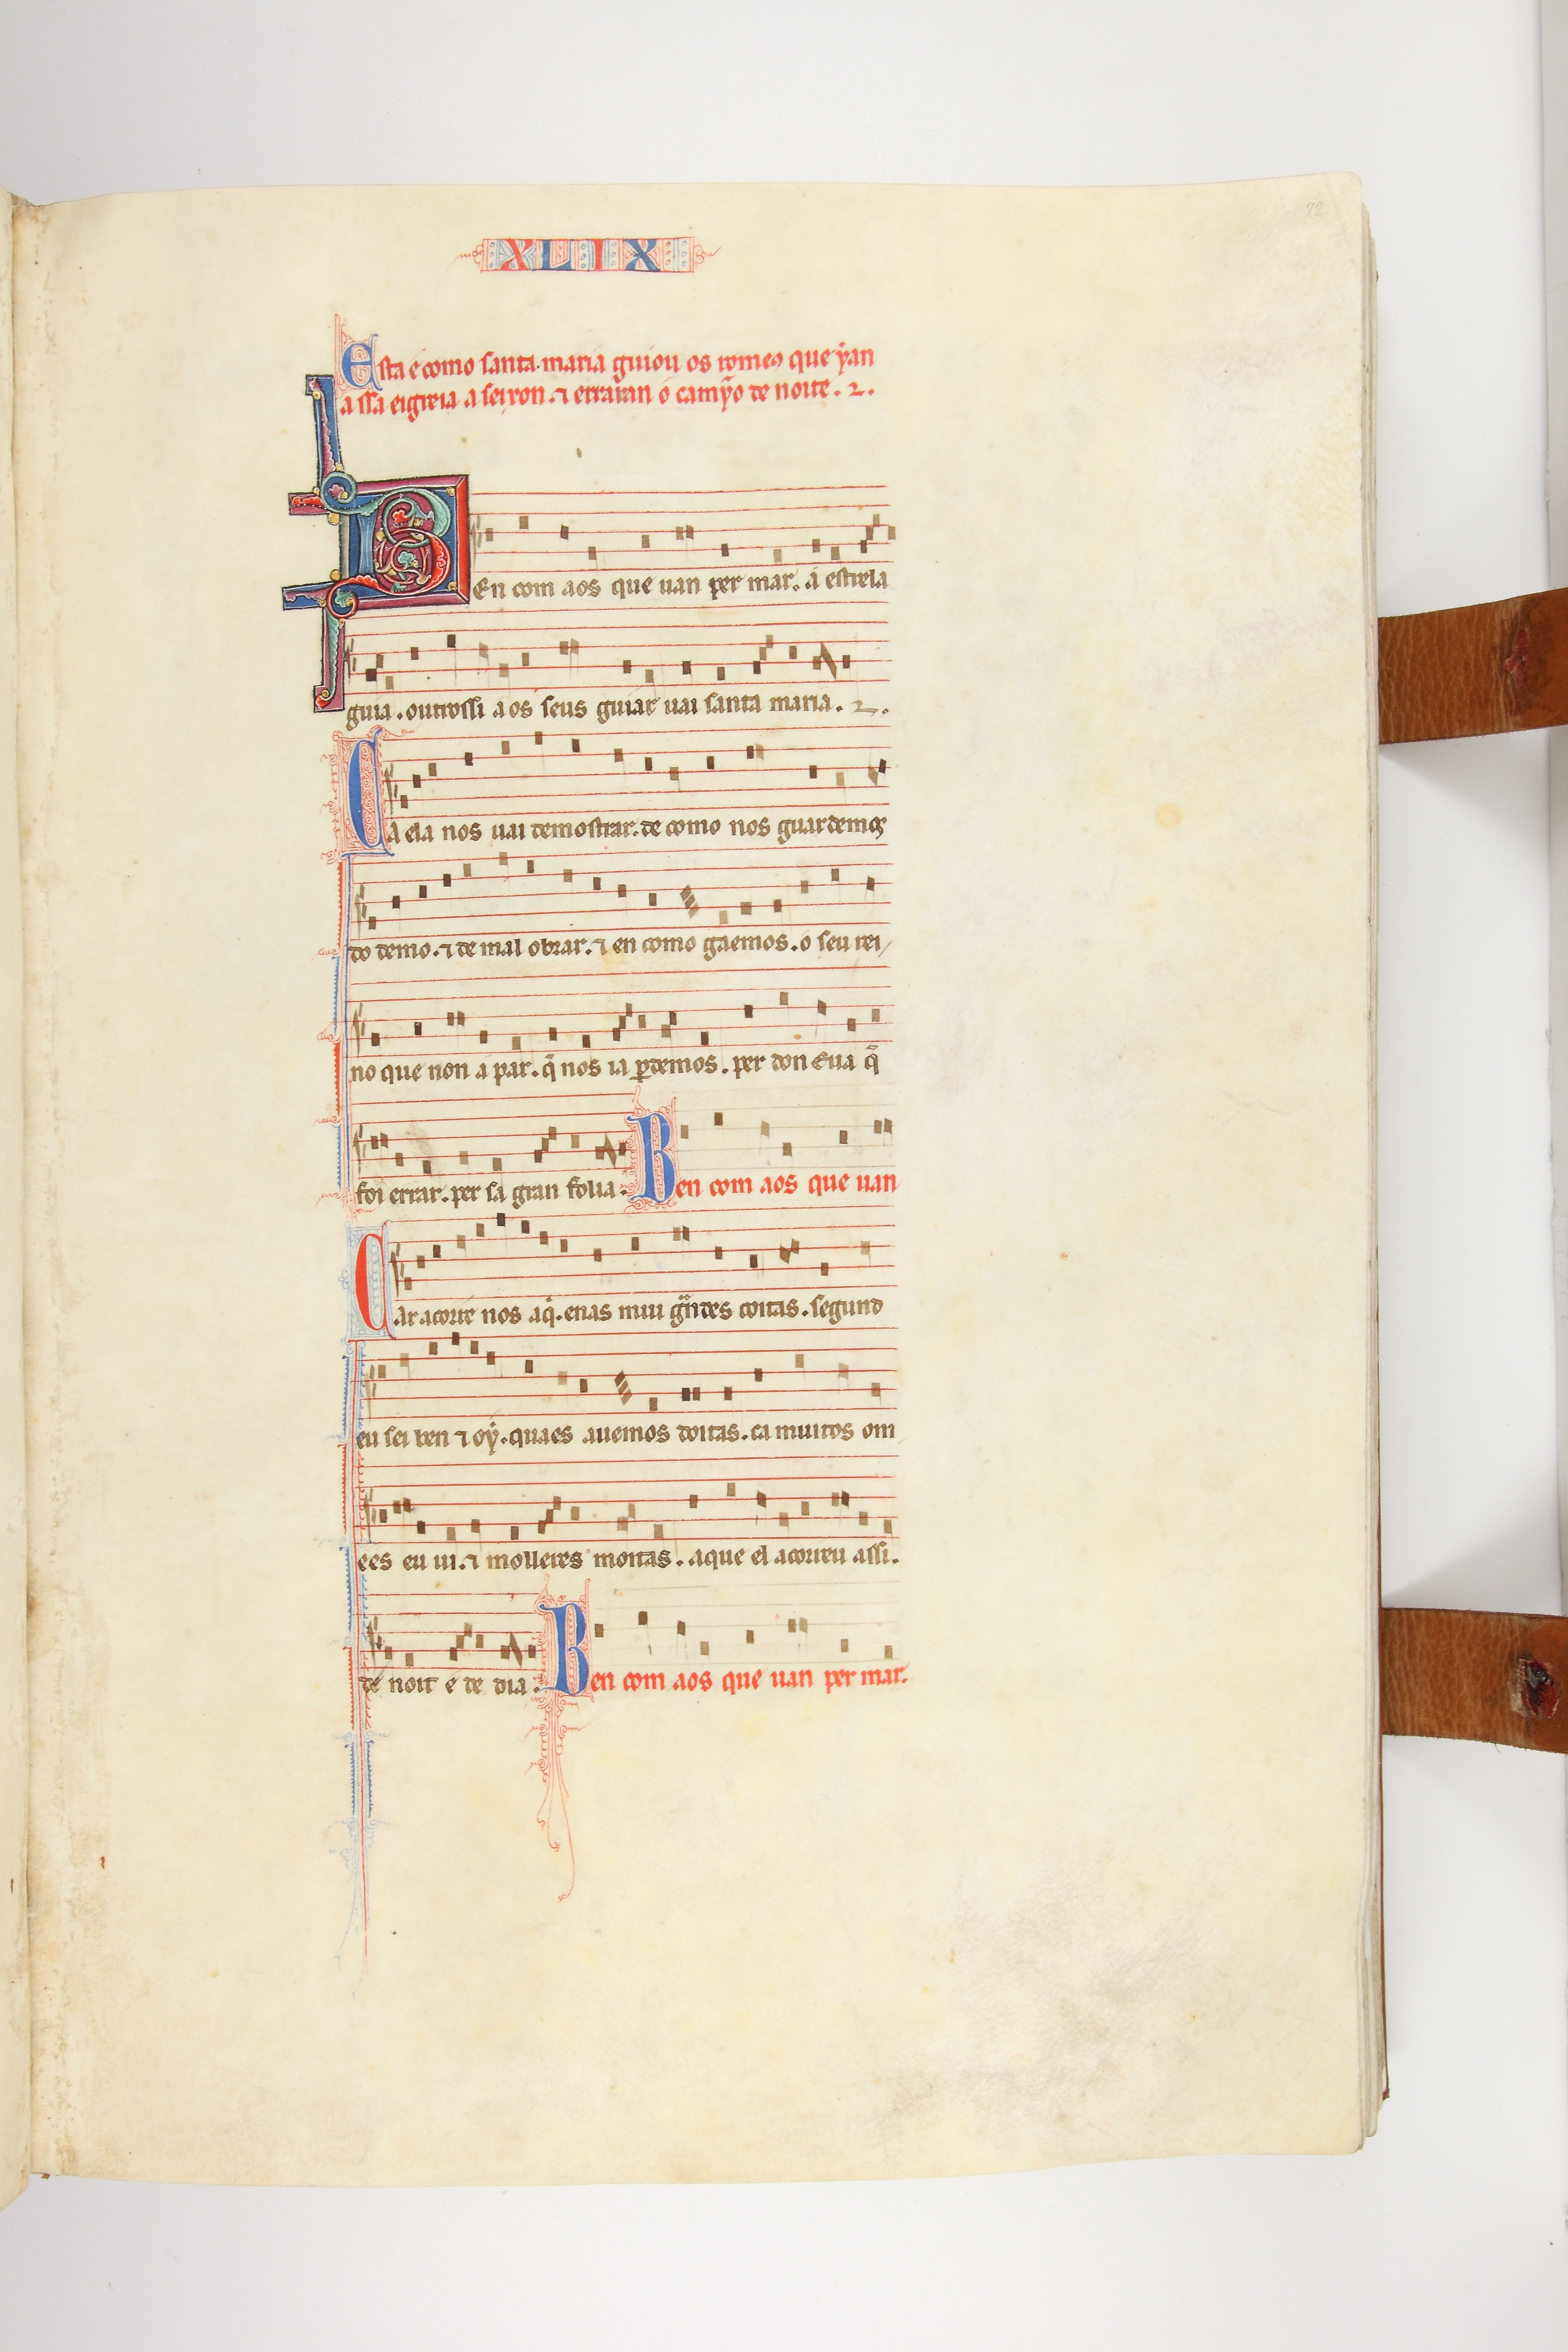 72
XLIX
Esta é como santa maria guiou os romeos que ýan
a ssa eigreia a seixon. ⁊ erraran o camỹo de noite. 2.
BEn com aos que uan per mar. a estrela
guia. outrossi aos seus guiar uai santa maria. 2.
Ca ela nos uai demostrar. de como nos guardemos
do demo. ⁊ de mal obrar. ⁊ en como gaemos. o seu rei/
no que non á par. q̃ nos ia ꝑdemos. per don Eua q̃
foi errar. per sa gran folia. Ben com aos que uan
Car acorre nos aq́. enas mui gñdes coitas. segund
eu sei ben ⁊ oý. quaes auemos doitas. ca muitos om
ees eu ui. ⁊ molleres moitas. aque el acorreu assi.
de noit e de dia. Ben com aos que uan per mar.